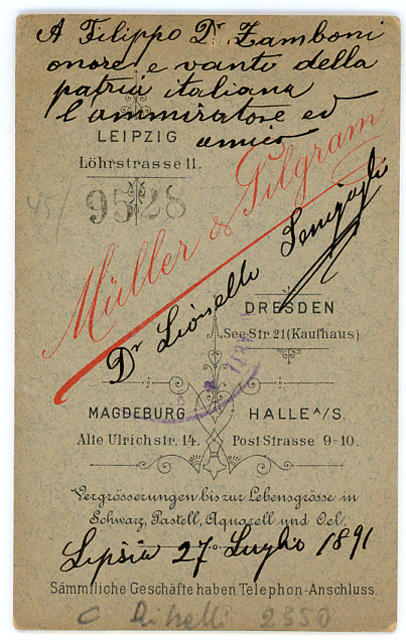 A Filippo Dr. Zamboni
onore e vanto della
patria italiana
l'ammiratore ed
amico
LEIPZIG
Löhrstrasse 11.
45/
9528
Müller & Pilgram
Dr Lionello Senigaglia
DRESDEN
See-Str. 21 (Kaufhaus)
MAGDEBURG
Alte Ulrichstr. 14.
HALLE A/S.
Post-Strasse 9-10.
Vergrösserungen bis zur Lebensgrösse in
Schwarz, Pastell, Aquarell und Oel.
Lipsia 27 Luglio 1891
Sämmtliche Geschäfte haben Telephon-Anschluss.
2350